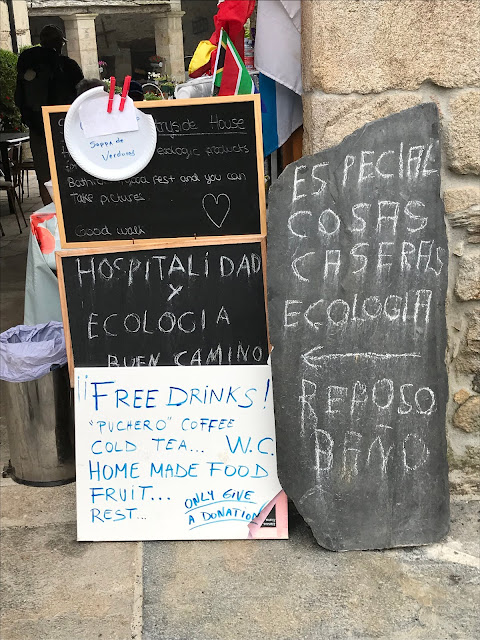 Soppa de
Verduras
House
ecologic products
rest and you can
Take pictures
Good walk
HOSPITALIDAD
Y
ECOLOGIA
BUEN CAMINO
¡¡FREE DRINKS!
"PUCHERO" COFFEE
COLD TEA... W.C.
HOME MADE FOOD
FRUIT...
REST...
ONLY GIVE
A DONATION
ESPECIAL
COSAS
CASERAS
ECOLOGIA
←
REPOSO
BAÑO